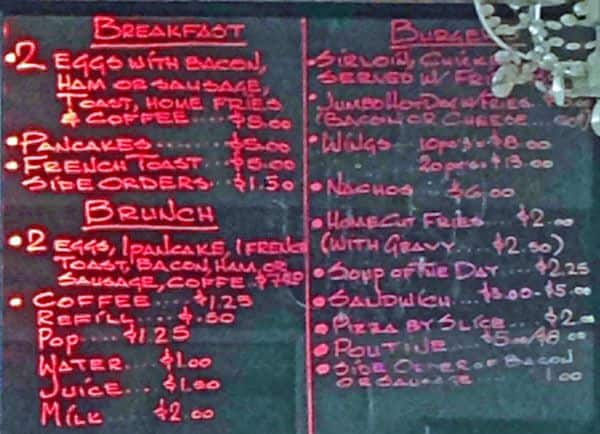 BREAKFAST
• 2 EGGS WITH BACON,
HAM OR SAUSAGE,
TOAST, HOME FRIES
& COFFEE ..... $5.00
• PANCAKES ..... $5.00
• FRENCH TOAST ... $5.00
SIDE ORDERS ... $1.50
BRUNCH
• 2 EGGS, 1 PANCAKE, 1 FRENCH
TOAST, BACON, HAM, OR
SAUSAGE, COFFE
• COFFEE .... $1.25
REFILL .... $.50
POP .... $1.25
WATER .... $1.00
JUICE .... $1.50
MILK ... $2.00
• SIRLOIN,
SERVED W/
• JUMBO HOT DOG W/ FRIES
(BACON OR CHEESE
• WINGS 10 pcs = $8.00
20 pcs = $13.00
• NACHOS $6.00
• HOME CUT FRIES $2.00
(WITH GRAVY .... $2.50)
• SOUP OF THE DAY ... $2.25
• SANDWICH .... $3.00 - $5.00
• PIZZA BY SLICE .... $2.00
• POUTINE ... $5.00/$8.00
• SIDE ORDER OF BACON
OR SAUSAGE .... 1.00